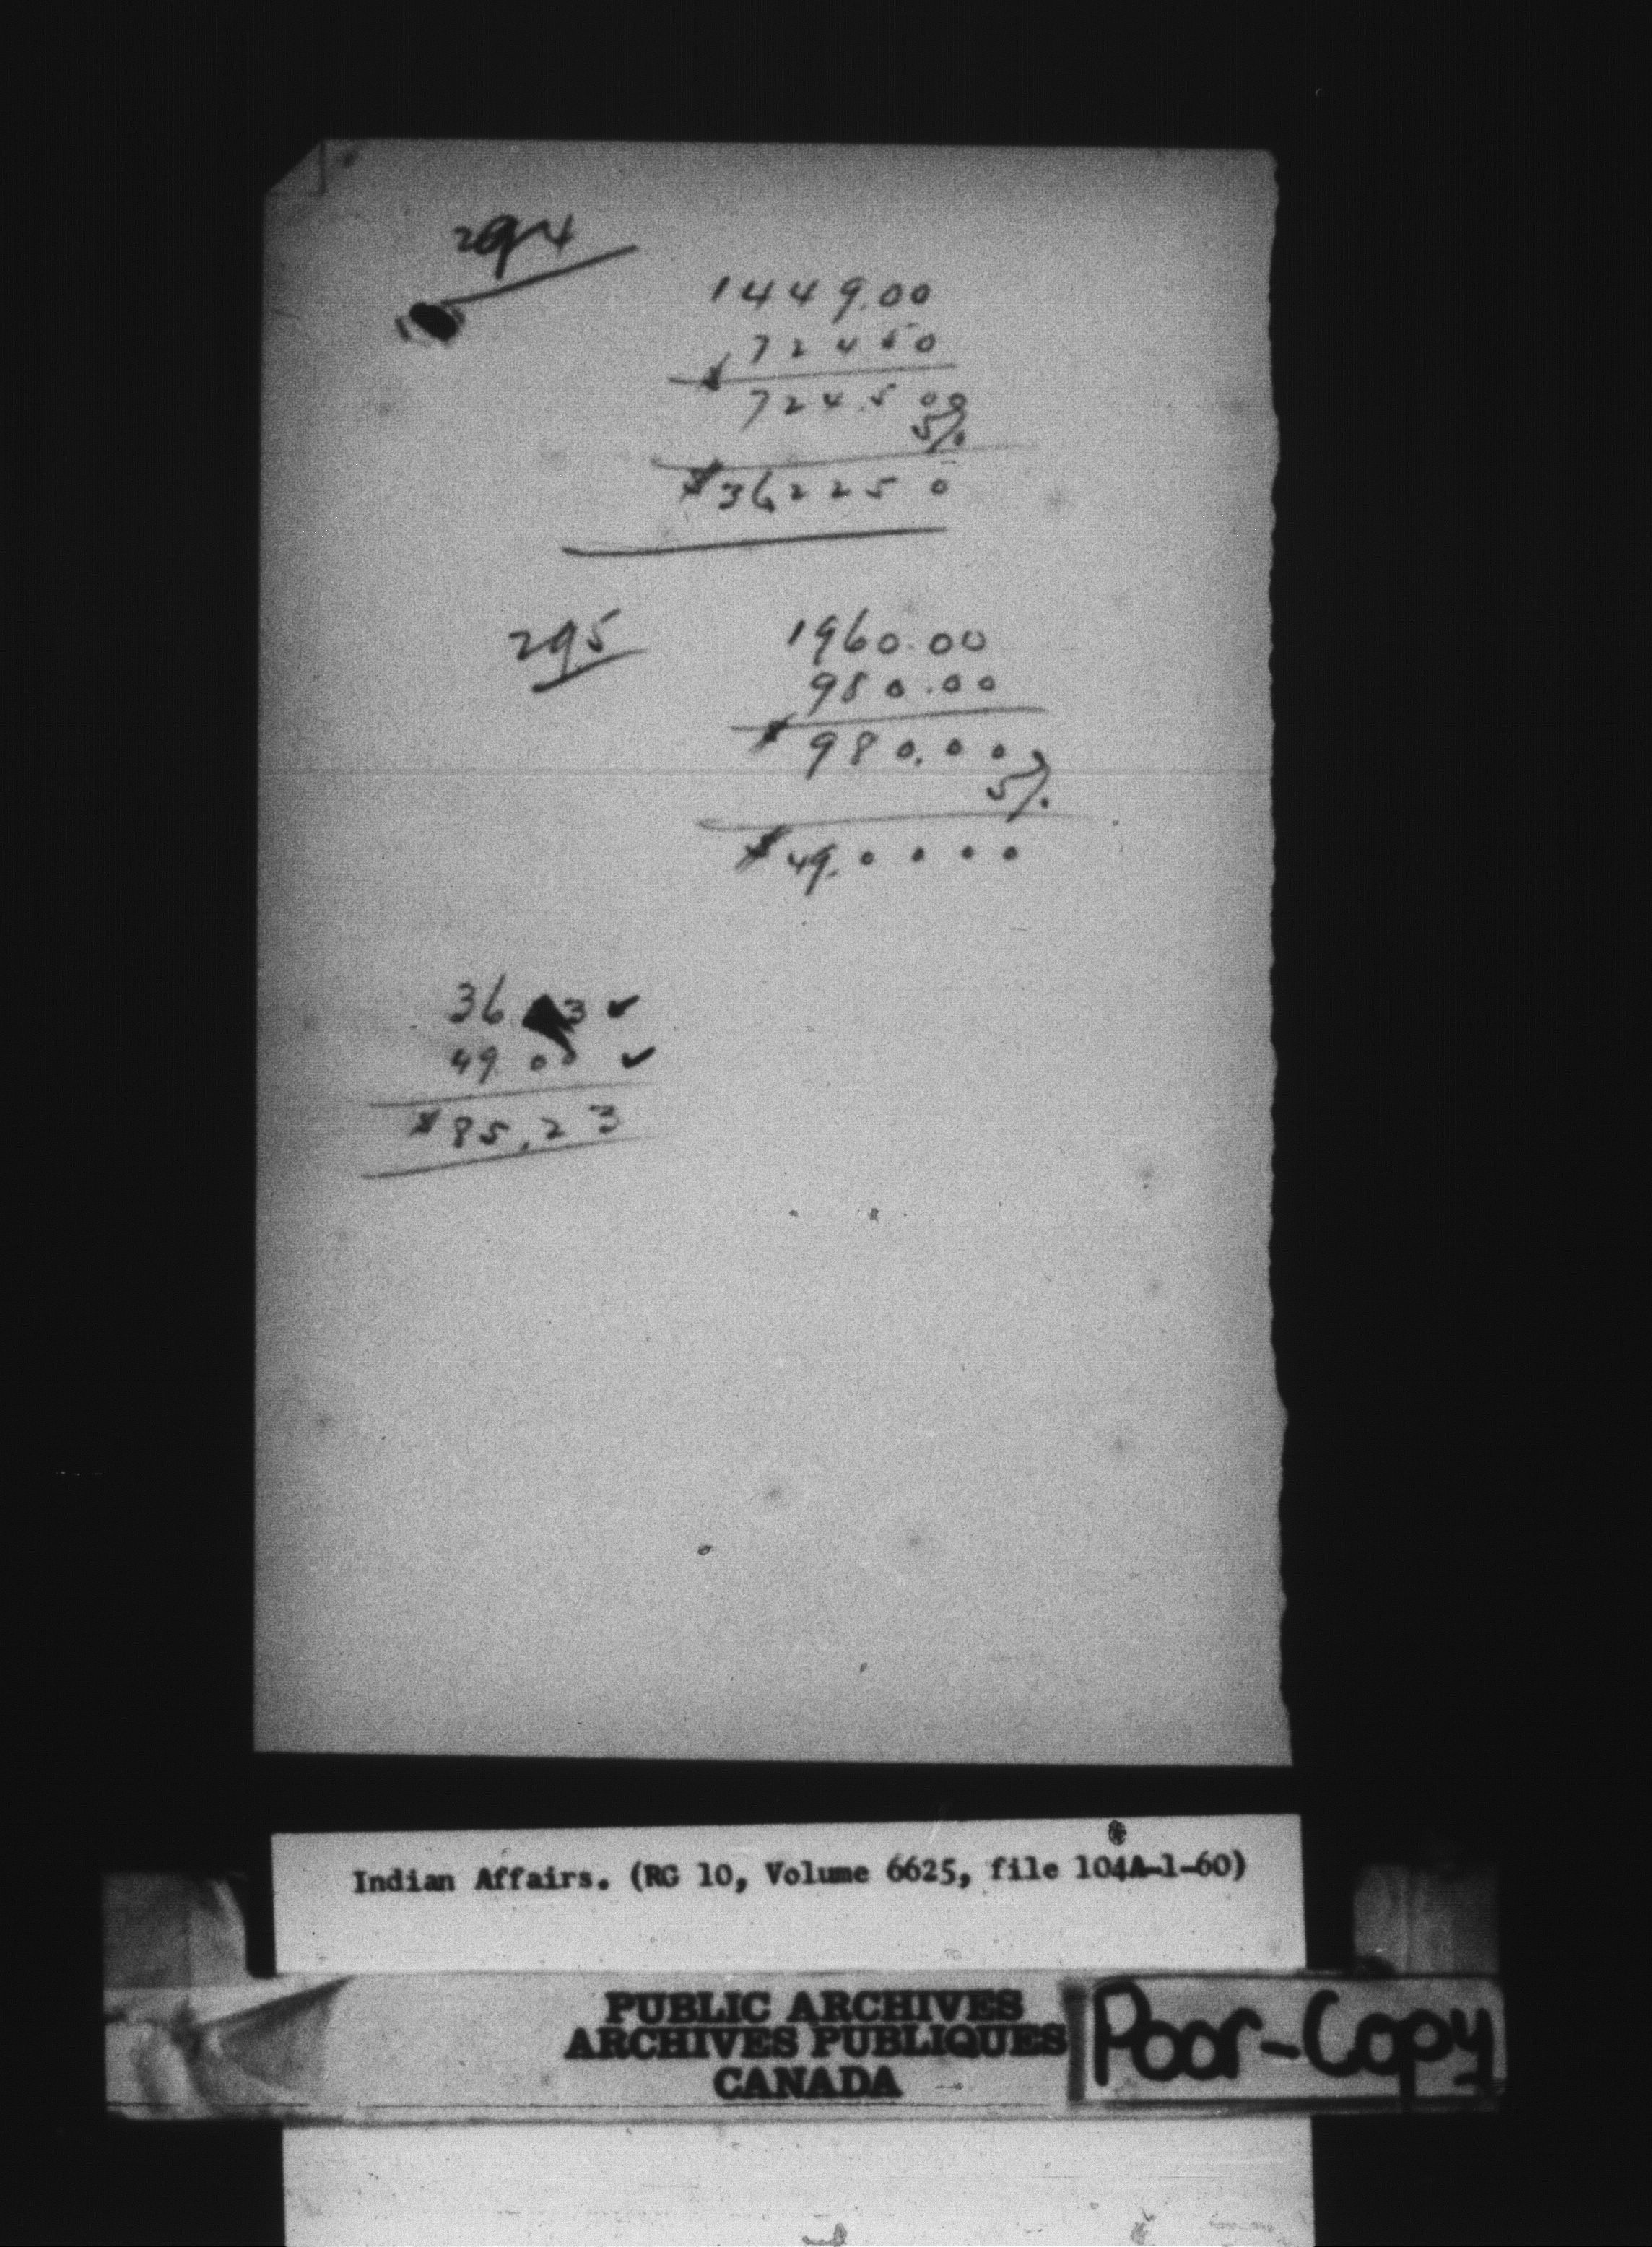 294
1449.00
72450
$ 724.500
5%
$ 362250
295
1960.00
980.00
$ 980.00
5%
$ 49.0000
36 3 ✓
49.00 ✓
$ 85.23
Indian Affairs. (RG 10, Volume 6625, file 104A-1-60)
PUBLIC ARCHIVES
ARCHIVES PUBLIQUES
CANADA
Poor-Copy